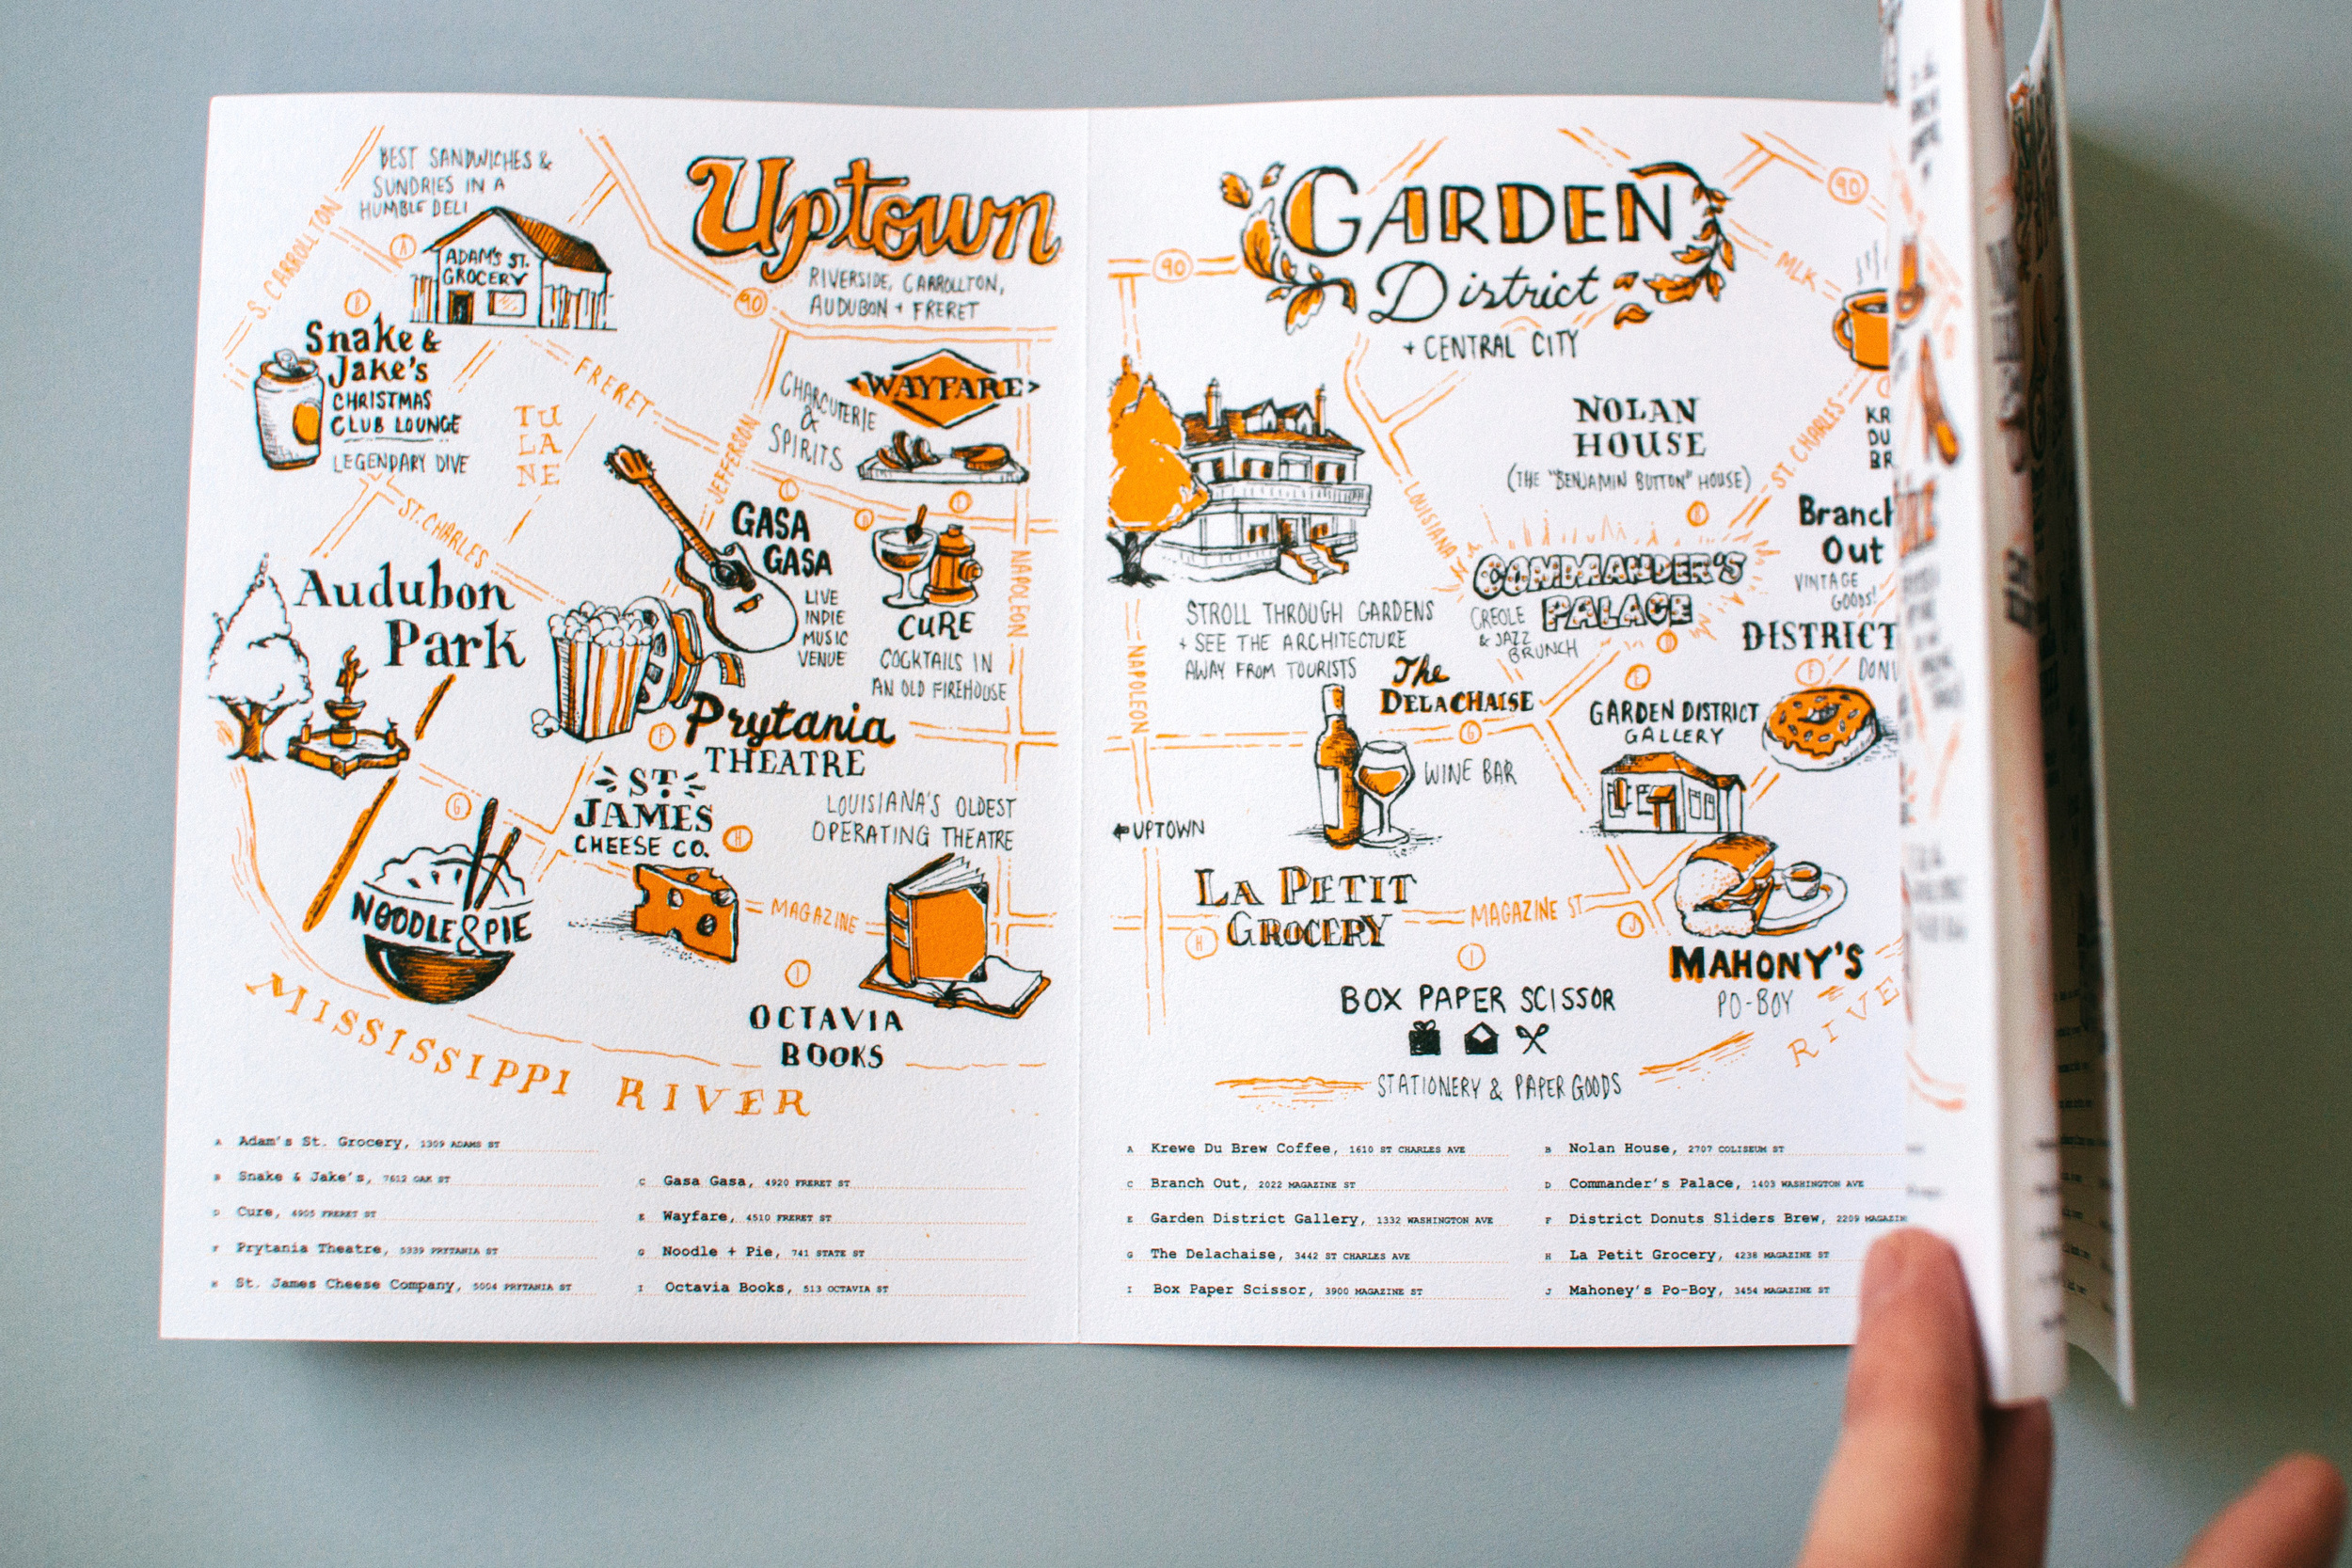 BEST SANDWICHES &
SUNDRIES IN A
HUMBLE DELI
S. CARROLLTON
A
ADAM'S ST.
GROCERY
Uptown
RIVERSIDE, CARROLLTON,
AUDUBON + FRERET
90
B
Snake &
Jake's
CHRISTMAS
CLUB LOUNGE
LEGENDARY DIVE
FRERET
TU
LA
NE
JEFFERSON
CHARCUTERIE
&
SPIRITS
WAYFARE
ST. CHARLES
GASA
GASA
LIVE
INDIE
MUSIC
VENUE
CURE
COCKTAILS IN
AN OLD FIREHOUSE
NAPOLEON
Audubon
Park
F
Prytania
THEATRE
LOUISIANA'S OLDEST
OPERATING THEATRE
G
ST.
JAMES
CHEESE CO.
H
NOODLE & PIE
MAGAZINE
I
OCTAVIA
BOOKS
MISSISSIPPI RIVER
A Adam's St. Grocery, 1309 ADAMS ST
B Snake & Jake's, 7612 OAK ST
C Gasa Gasa, 4920 FRERET ST
D Cure, 4905 FRERET ST
E Wayfare, 4510 FRERET ST
F Prytania Theatre, 5339 PRYTANIA ST
G Noodle + Pie, 741 STATE ST
H St. James Cheese Company, 5004 PRYTANIA ST
I Octavia Books, 513 OCTAVIA ST
GARDEN
District
+ CENTRAL CITY
90
90
MLK
NOLAN
HOUSE
(THE "BENJAMIN BUTTON" HOUSE)
ST. CHARLES
KR
DU
BR
LOUISIANA
Branch
Out
VINTAGE
GOODS!
COMMANDER'S
PALACE
CREOLE
& JAZZ
BRUNCH
STROLL THROUGH GARDENS
+ SEE THE ARCHITECTURE
AWAY FROM TOURISTS
NAPOLEON
DISTRICT
F
The
DELACHAISE
G
WINE BAR
E
GARDEN DISTRICT
GALLERY
UPTOWN
LA PETIT
GROCERY
H
MAGAZINE ST
J
I
MAHONY'S
PO-BOY
BOX PAPER SCISSOR
STATIONERY & PAPER GOODS
RIVE
A Krewe Du Brew Coffee, 1610 ST CHARLES AVE
B Nolan House, 2707 COLISEUM ST
C Branch Out, 2022 MAGAZINE ST
D Commander's Palace, 1403 WASHINGTON AVE
E Garden District Gallery, 1332 WASHINGTON AVE
F District Donuts Sliders Brew, 2209 MAGAZIN
G The Delachaise, 3442 ST CHARLES AVE
H La Petit Grocery, 4238 MAGAZINE ST
I Box Paper Scissor, 3900 MAGAZINE ST
J Mahoney's Po-Boy, 3454 MAGAZINE ST